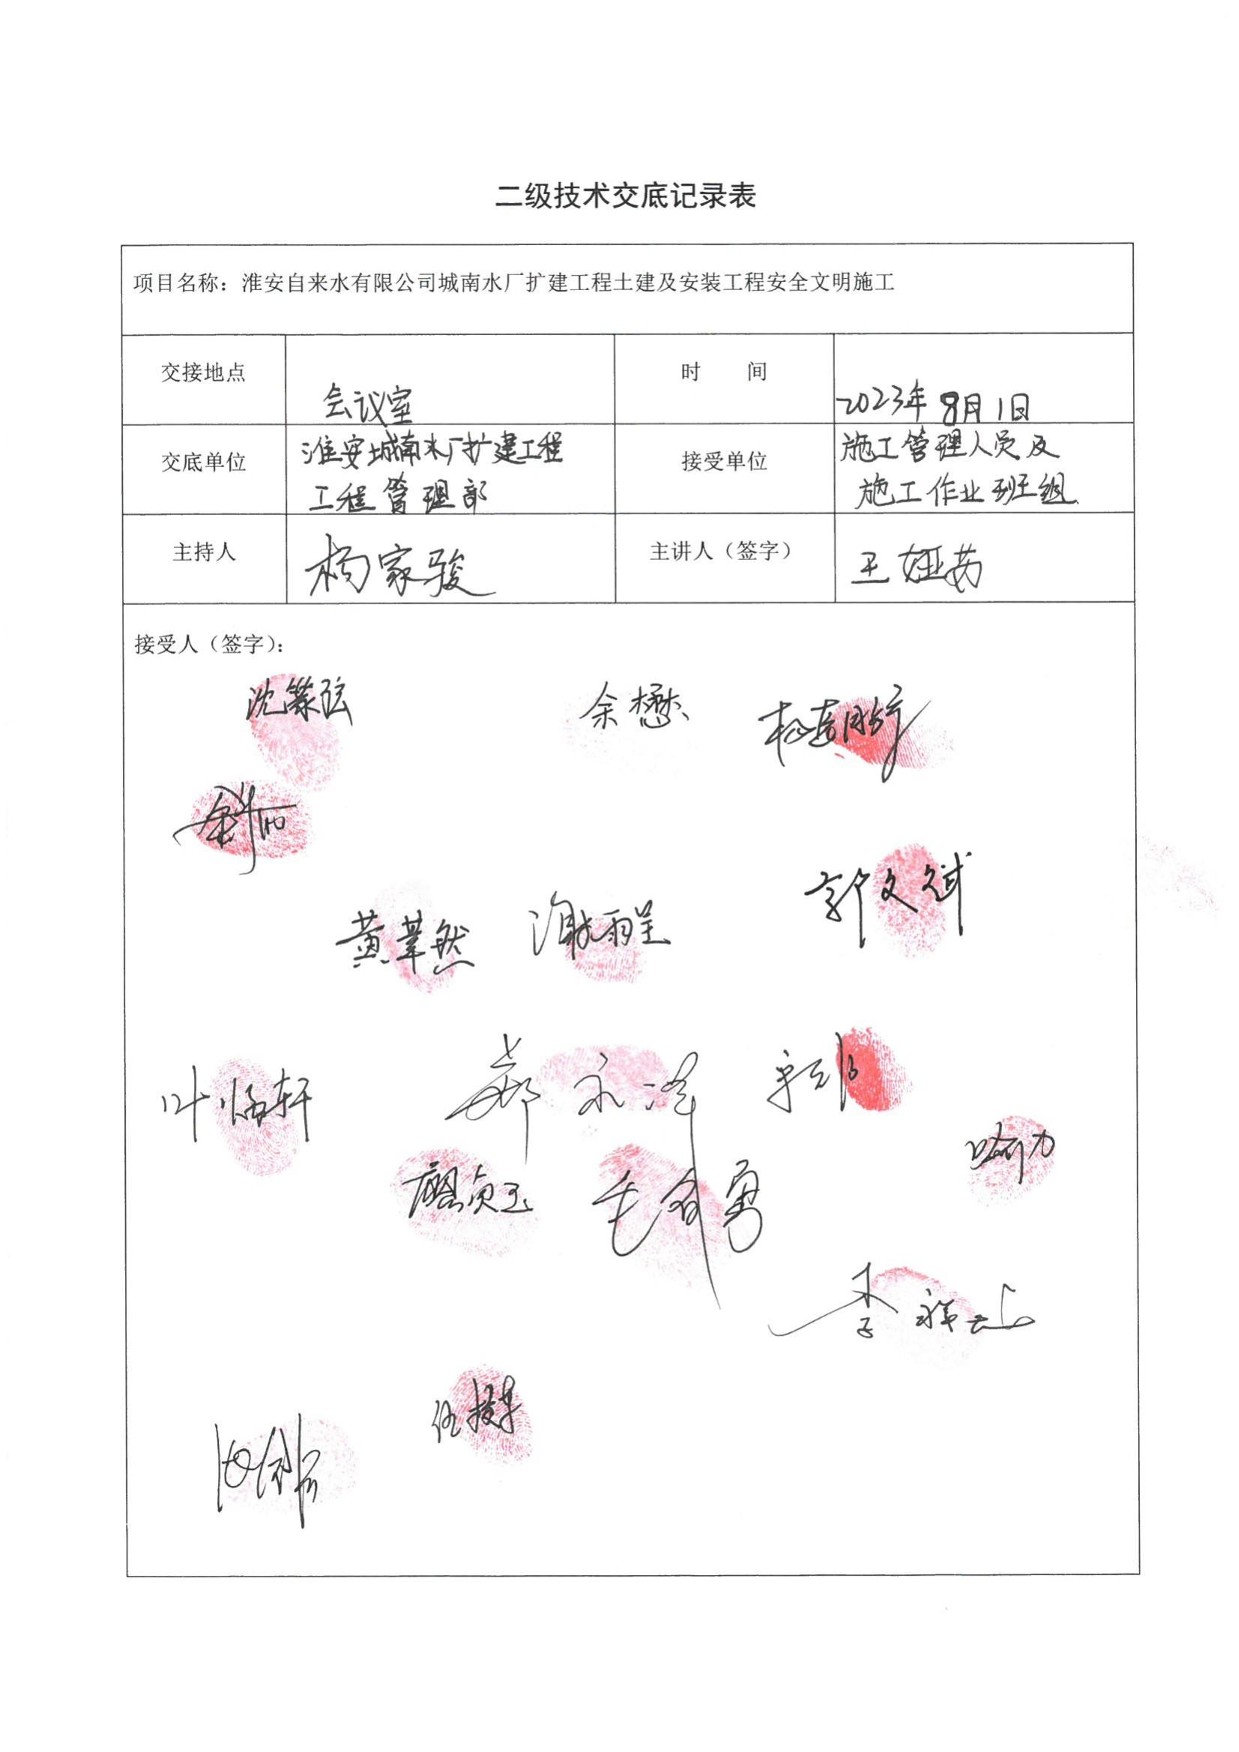 二级技术交底记录表
项目名称：淮安自来水有限公司城南水厂扩建工程土建及安装工程安全文明施工
交接地点
会议室
时 间
2023年8月1日
交底单位
淮安城南水厂扩建工程
工程管理部
接受单位
施工管理人员及
施工作业班组
主持人
杨家骏
主讲人（签字）
王娅茹
接受人（签字）：
沈篆弦
余懋
黄苇然
谢雨呈
郭文斌
叶临轩
郑永泽
喻力
毛有勇